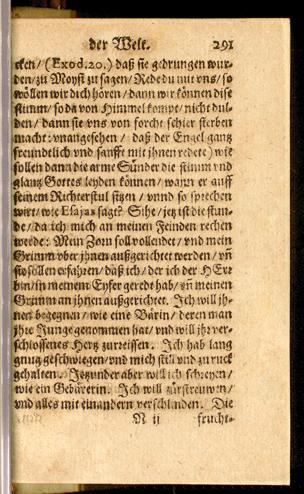 der Welt. 291
cken/ (Exod. 20.) daß sie gedrungen wur-
den/ zu Moysi zu sagen/ Rede du mit vns/ so
wöllen wir dich hören/ dann wir können dise
stimm/ so da von Himmel kompt/ nicht dul-
den/ dann sie vns von forcht schier sterben
macht: vnangesehen/ daß der Engel gantz
freundlich vnd sanfft mit jhnen redete) wie
sollen dann die arme Sünder die stimm vnd
glantz Gottes leyden können/ wann er auff
seinem Richterstul sitzen/ vnnd so sprechen
wirt/ wie Esajas sagt? Sihe/ jetz ist die stun-
de/ da ich mich an meinen Feinden rechen
werde: Mein Zorn soll vollendet/ vnd mein
Grimm vber jhnen außgerichtet werden/ vñ
sie sollen erfahren/ daß ich/ der ich der HErr
bin/ in meinem Eyfer geredt hab/ vñ meinen
Grimm an jhnen außgerichtet. Ich will jh-
nen begegnen/ wie eine Bärin/ deren man
jhre Junge genommen hat/ vnd will jhr ver-
schlossenes Hertz zureissen. Ich hab lang
gnug geschwiegen/ vnd mich still vnd zu ruck
gehalten. Jetzunder aber will ich schreyen/
wie ein Gebärerin. Ich will zürstreuwen/
vnd alles mit einandern verschlinden. Die
N ij frucht-